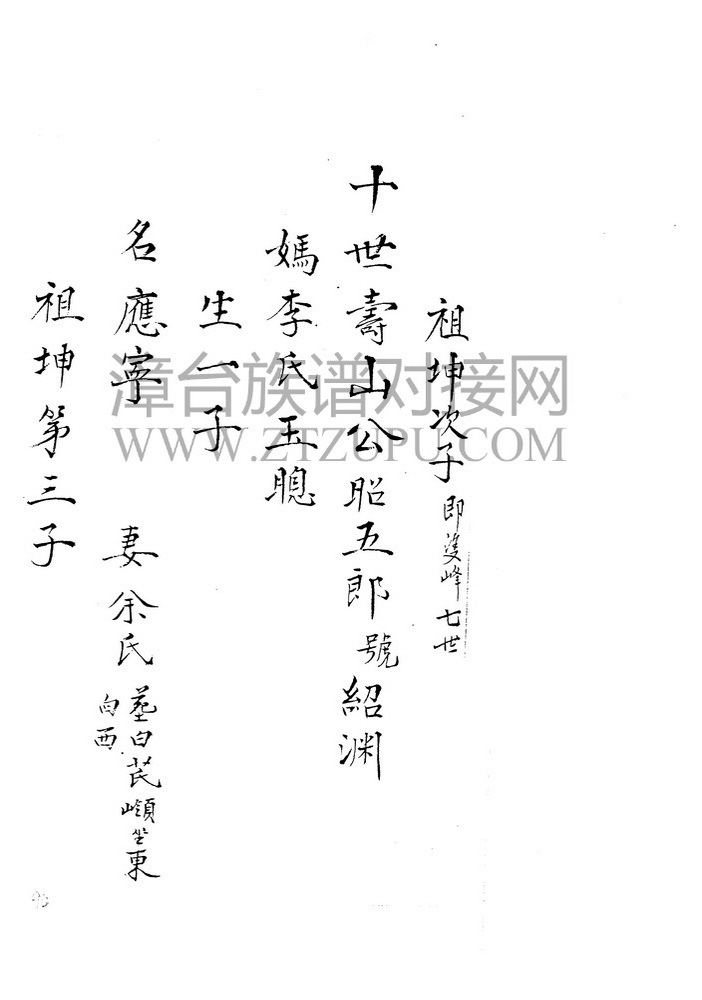 祖坤次子即雙峰七世
十世壽山公昭五郎號紹渊
媽李氏玉聰
生一子
名應寧 妻余氏墓白芒嶺坐東
向西
祖坤第三子
漳台族谱对接网
WWW.ZTZUPU.COM